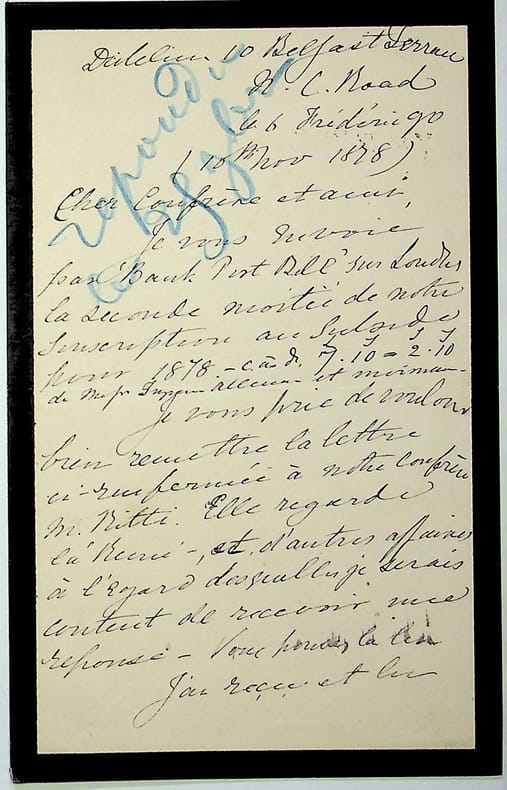 Dublin 10 Belfast Terrace
N. C. Road
le 6 Frédéric 90
(10th Nov 1878)
répondu
Cher Confrère et ami,
Je vous envoie
par Bank Post Bill sur Londres
la seconde moitié de notre
Souscription au Subside
pour 1878. - c. à. d. 7. 10 = 2. 10
de
Je vous prie de vouloir
bien remettre la lettre
ci-renfermée à notre confrère
M. Ritti. Elle regarde
la Revue -, et d'autres affaires
à l'égard desquelles je serais
content de recevoir une
reponse - Vous pouvez la lire
J'ai reçu et lu